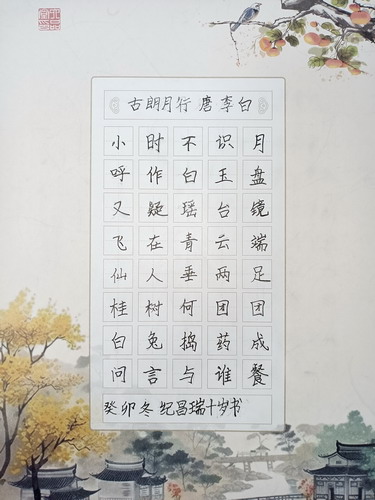 古朗月行 唐 李白
小时不识月
呼作白玉盘
又疑瑶台镜
飞在青云端
仙人垂两足
桂树何团团
白兔捣药成
问言与谁餐
癸卯冬 纪昌瑞十岁书